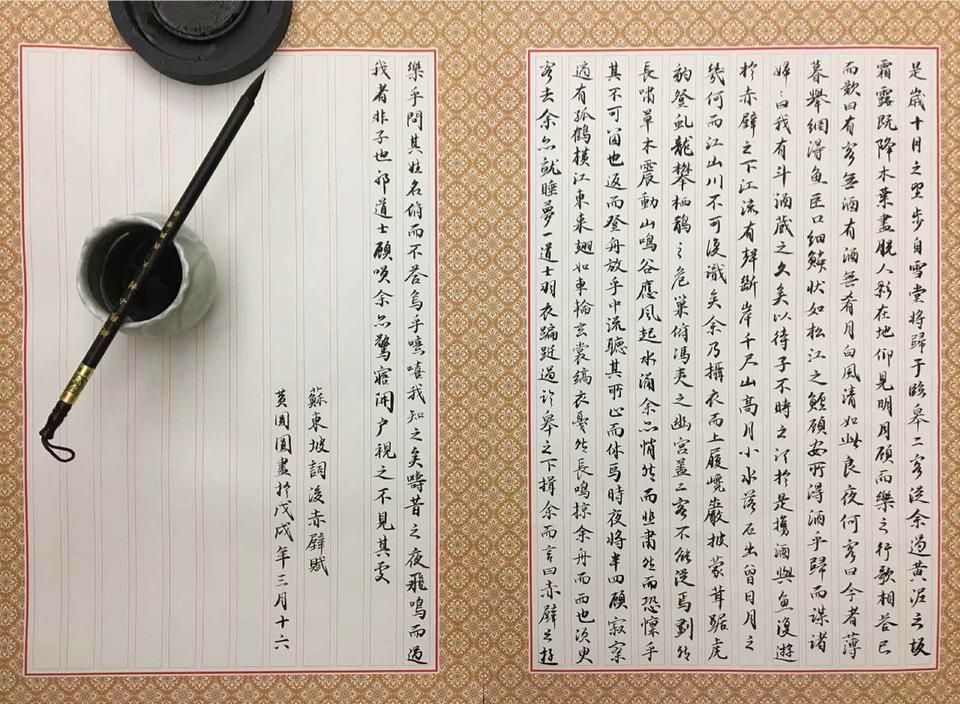 是歲十月之望步自雪堂將歸于臨皋二客從余過黃泥之坂
霜露既降木葉盡脫人影在地仰見明月顧而樂之行歌相答已
而歎曰有客無酒有酒無肴月白風清如此良夜何客曰今者薄
暮舉網得魚巨口細鱗狀如松江之鱸顧安所得酒乎歸而謀諸
婦〻曰我有斗酒藏之久矣以待子不時之須於是攜酒與魚復遊
於赤壁之下江流有聲斷岸千尺山高月小水落石出曾日月之
幾何而江山川不可復識矣余乃攝衣而上履巉巖披蒙茸踞虎
豹登虬龍攀栖鶻之危巢俯馮夷之幽宮蓋二客不能從焉劃然
長嘯草木震動山鳴谷應風起水涌余亦悄然而悲肅然而恐懍乎
其不可留也返而登舟放乎中流聽其所止而休焉時夜將半四顧寂寥
適有孤鶴橫江東來翅如車輪玄裳縞衣戛然長鳴掠余舟而西也須臾
客去余亦就睡夢一道士羽衣蹁躚過臨皋之下揖余而言曰赤壁之遊
樂乎問其姓名俯而不答烏乎噫嘻我知之矣疇昔之夜飛鳴而過
我者非子也邪道士顧笑余亦驚寤開戶視之不見其處
蘇東坡詞後赤壁賦
黃圓圓書於戊戌年三月十六